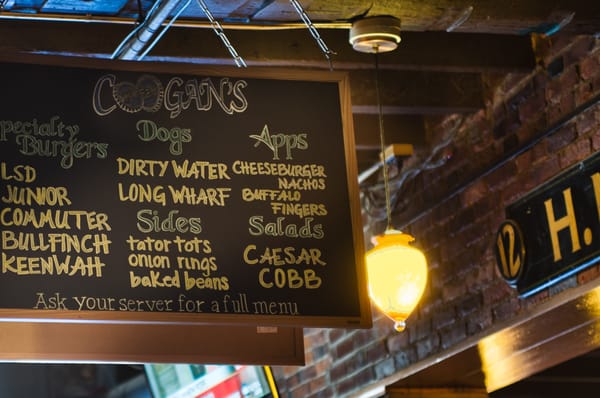 COOGAN'S
Specialty
Burgers
LSD
JUNIOR
COMMUTER
BULLFINCH
KEENWAH
Dogs
DIRTY WATER
LONG WHARF
Sides
tator tots
onion rings
baked beans
Apps
CHEESEBURGER
NACHOS
BUFFALO
FINGERS
Salads
CAESAR
COBB
Ask your server for a full menu
12
H.